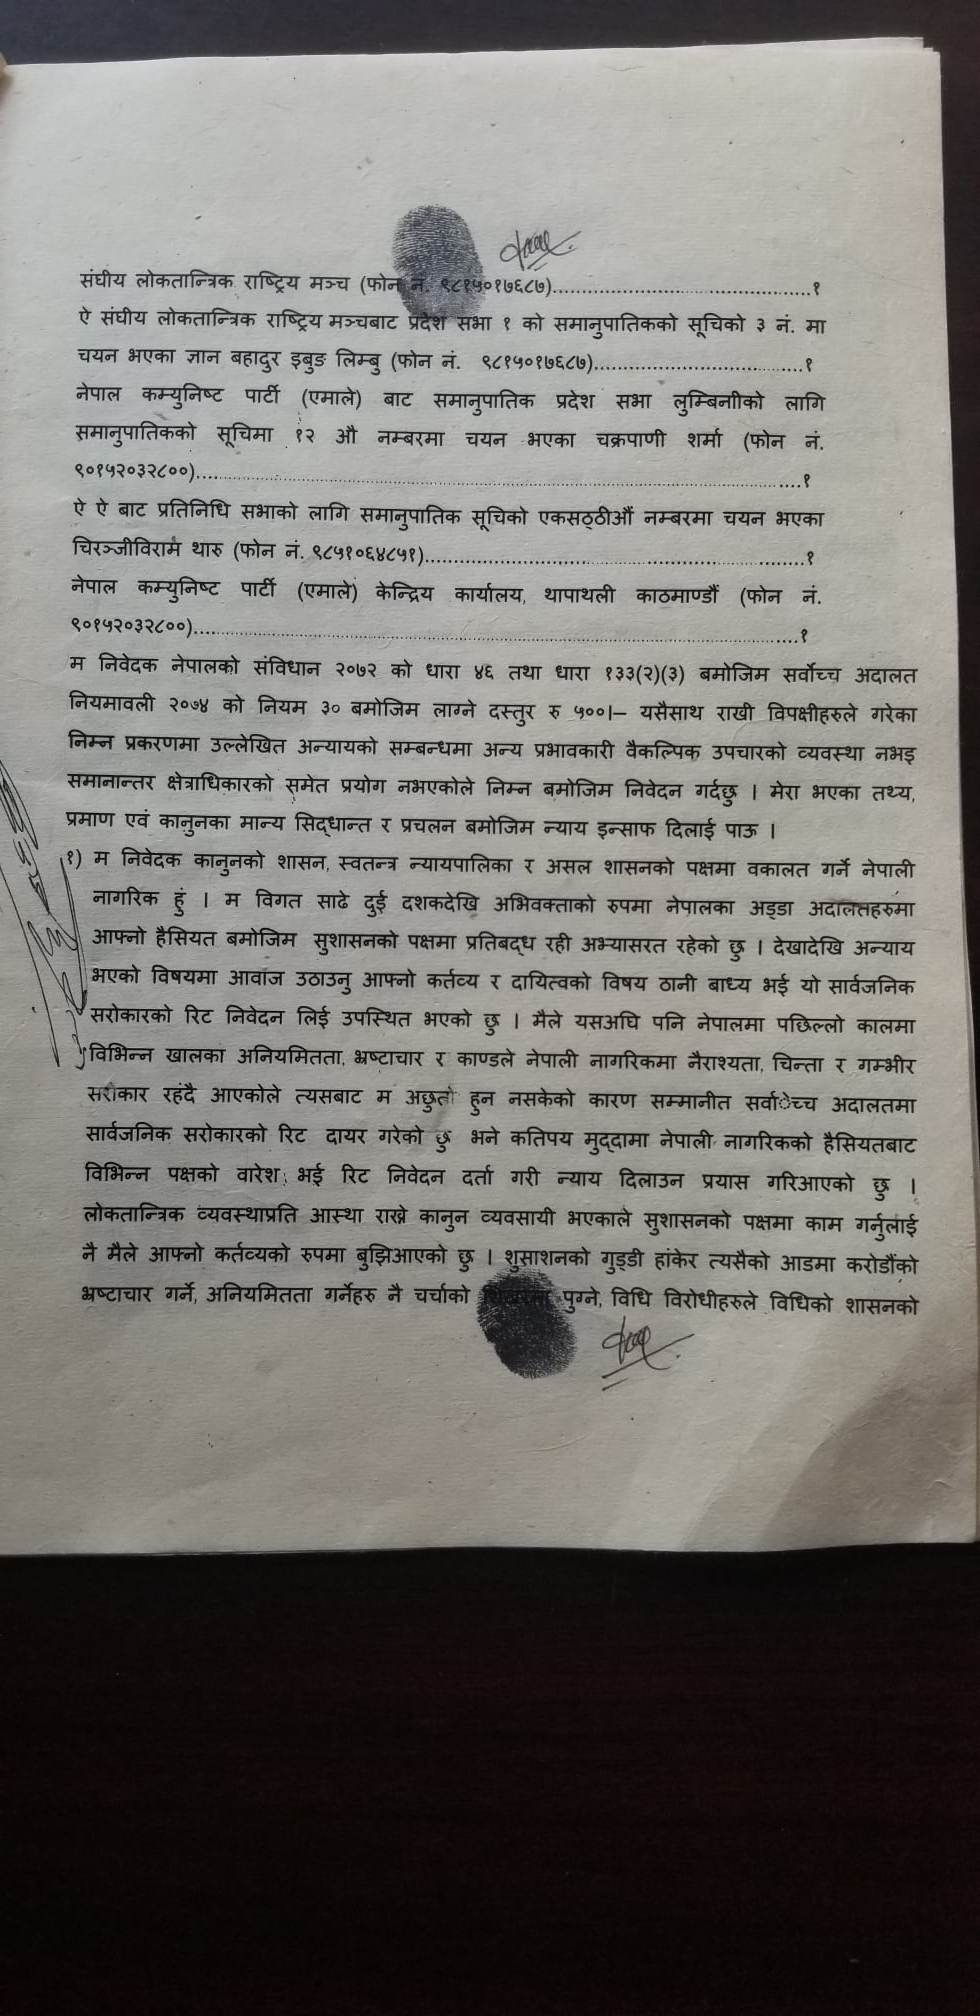 संघीय लोकतान्त्रिक राष्ट्रिय मञ्च (फोन नं. ९८१५०१७६८७)..........................................१
ऐ संघीय लोकतान्त्रिक राष्ट्रिय मञ्चबाट प्रदेश सभा १ को समानुपातिकको सूचिको ३ नं. मा
चयन भएका ज्ञान बहादुर इबुङ लिम्बु (फोन नं. ९८१५०१७६८७)..................................१
नेपाल कम्युनिष्ट पार्टी (एमाले) बाट समानुपातिक प्रदेश सभा लुम्बिनाीको लागि
समानुपातिकको सूचिमा १२ औ नम्बरमा चयन भएका चक्रपाणी शर्मा (फोन नं.
९०१५२०३२८००)....................................................................................................१
ऐ ऐ बाट प्रतिनिधि सभाको लागि समानुपातिक सूचिको एकसठ्ठीऔं नम्बरमा चयन भएका
चिरञ्जीविराम थारु (फोन नं. ९८५१०६४८५१)..............................................................१
नेपाल कम्युनिष्ट पार्टी (एमाले) केन्द्रिय कार्यालय, थापाथली काठमाण्डौं (फोन नं.
९०१५२०३२८००)....................................................................................................१
म निवेदक नेपालको संविधान २०७२ को धारा ४६ तथा धारा १३३(२)(३) बमोजिम सर्वोच्च अदालत
नियमावली २०७४ को नियम ३० बमोजिम लाग्ने दस्तुर रु ५००।– यसैसाथ राखी विपक्षीहरुले गरेका
निम्न प्रकरणमा उल्लेखित अन्यायको सम्बन्धमा अन्य प्रभावकारी वैकल्पिक उपचारको व्यवस्था नभइ
समानान्तर क्षेत्राधिकारको समेत प्रयोग नभएकोले निम्न बमोजिम निवेदन गर्दछु । मेरा भएका तथ्य,
प्रमाण एवं कानुनका मान्य सिद्धान्त र प्रचलन बमोजिम न्याय इन्साफ दिलाई पाऊ ।
१) म निवेदक कानुनको शासन, स्वतन्त्र न्यायपालिका र असल शासनको पक्षमा वकालत गर्ने नेपाली
नागरिक हुं । म विगत साढे दुई दशकदेखि अभिवक्ताको रुपमा नेपालका अड्डा अदालतहरुमा
आफ्नो हैसियत बमोजिम सुशासनको पक्षमा प्रतिबद्ध रही अभ्यासरत रहेको छु । देखादेखि अन्याय
भएको विषयमा आवाज उठाउनु आफ्नो कर्तव्य र दायित्वको विषय ठानी बाध्य भई यो सार्वजनिक
सरोकारको रिट निवेदन लिई उपस्थित भएको छु । मैले यसअघि पनि नेपालमा पछिल्लो कालमा
विभिन्न खालका अनियमितता, भ्रष्टाचार र काण्डले नेपाली नागरिकमा नैराश्यता, चिन्ता र गम्भीर
सरोकार रहंदै आएकोले त्यसबाट म अछुतो हुन नसकेको कारण सम्मानीत सर्वाेच्च अदालतमा
सार्वजनिक सरोकारको रिट दायर गरेको छु भने कतिपय मुद्दामा नेपाली नागरिकको हैसियतबाट
विभिन्न पक्षको वारेश भई रिट निवेदन दर्ता गरी न्याय दिलाउन प्रयास गरिआएको छु ।
लोकतान्त्रिक व्यवस्थाप्रति आस्था राख्ने कानुन व्यवसायी भएकाले सुशासनको पक्षमा काम गर्नुलाई
नै मैले आफ्नो कर्तव्यको रुपमा बुझिआएको छु । शुसाशनको गुड्डी हांकेर त्यसैको आडमा करोडौंको
भ्रष्टाचार गर्ने, अनियमितता गर्नेहरु नै चर्चाको पुग्ने, विधि विरोधीहरुले विधिको शासनको